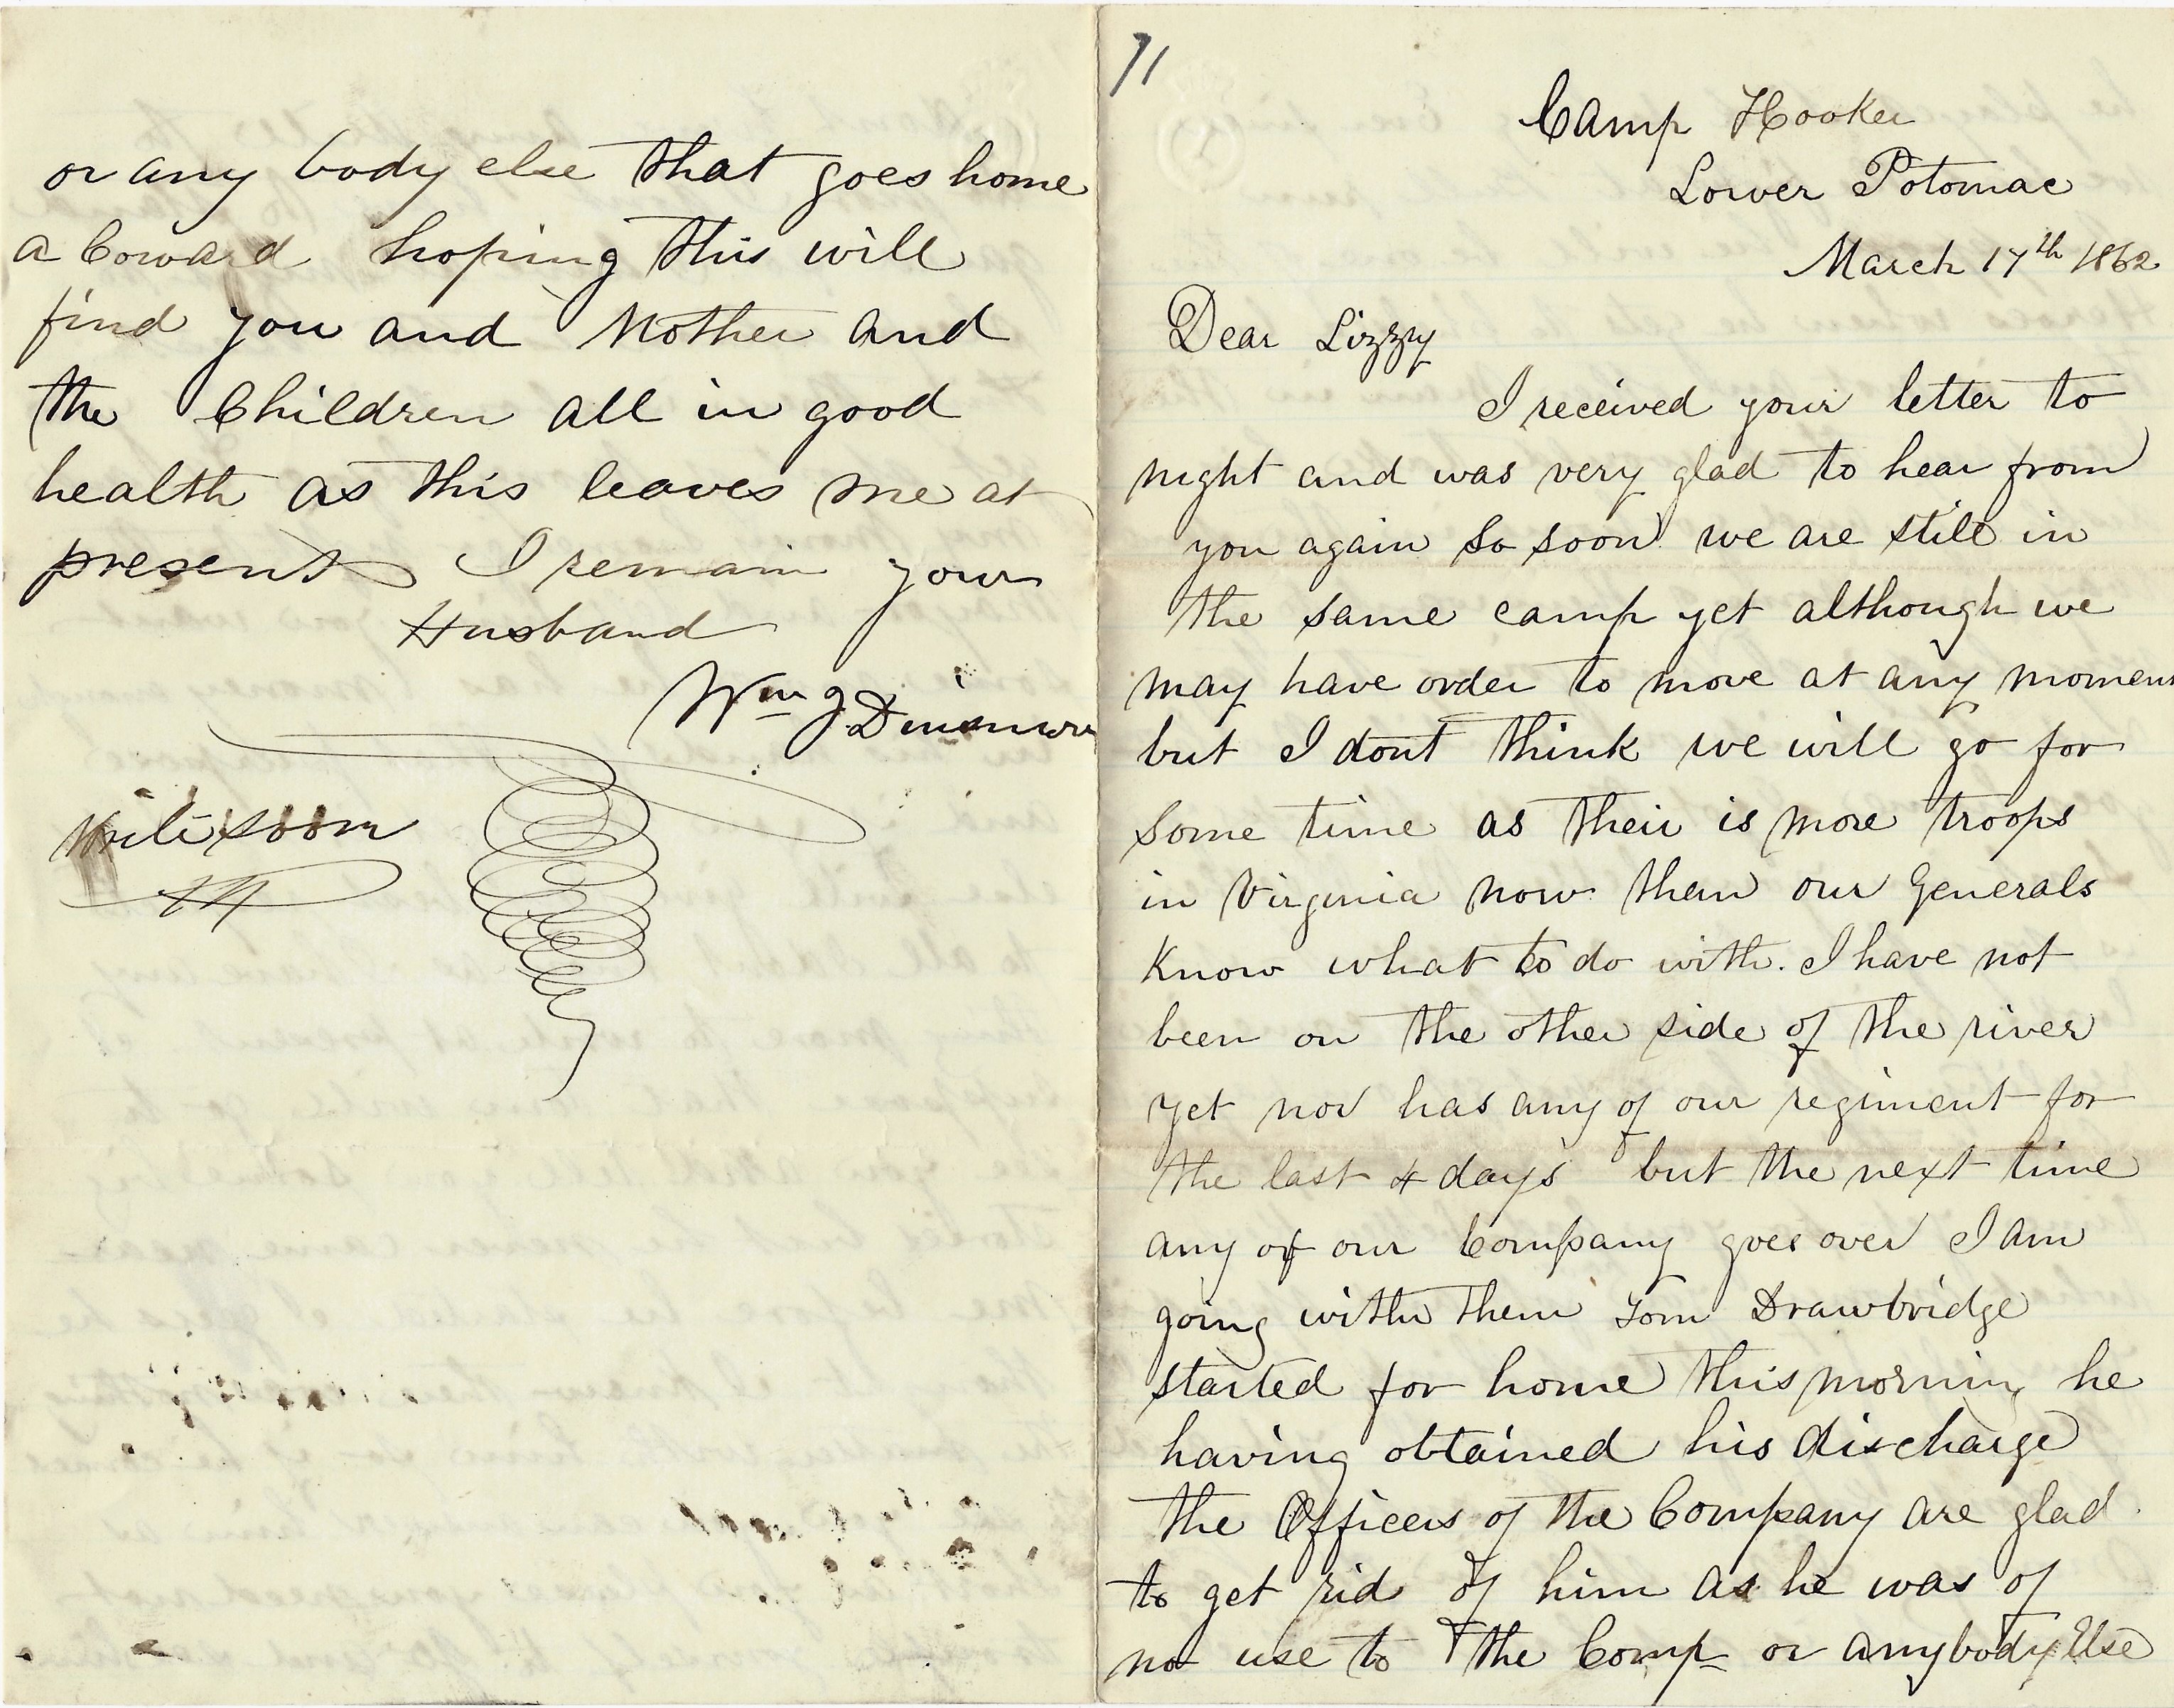 71
Camp Hooker
Lower Potomac
March 17th 1862
Dear Lizzy
I received your letter to
night and was very glad to hear from
you again so soon we are still in
the same camp yet although we
may have order to move at any moment
but I dont think we will go for
some time as their is more troops
in Virginia now than our Generals
Know what to do with. I have not
been on the other side of the river
yet nor has any of our regiment for
the last 4 days but the next time
any of our Company goes over I am
going with them Tom Drawbridge
started for home this morning he
having obtained his discharge
the Officers of the Company are glad
to get rid of him as he was of
no use to the Comp or anybody Else
or any body else that goes home
a Coward hoping this will
find you and Mother and
the Children all in good
health as this leaves me at
present I remain your
Husband
Wm J Dinsmore
Write soon